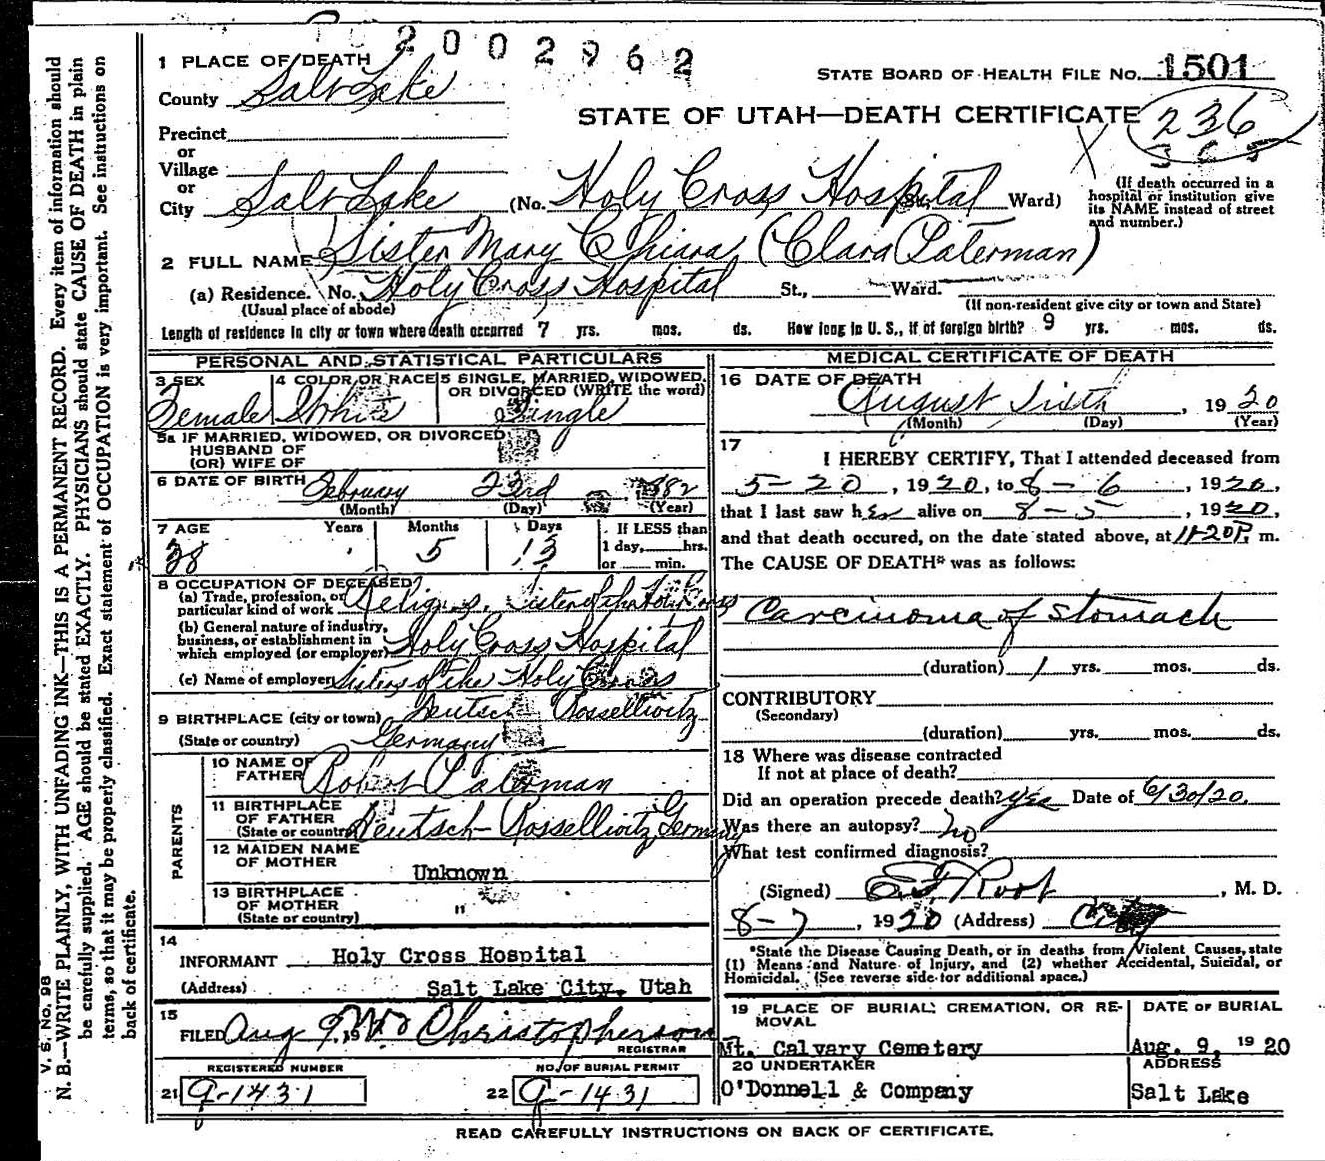 2002962
1 PLACE OF DEATH
STATE BOARD OF HEALTH FILE No. 1501
County Salt Lake
STATE OF UTAH—DEATH CERTIFICATE
236
Precinct
or
Village
or
City Salt Lake (No. Holy Cross Hospital St., Ward)
(If death occurred in a hospital or institution give its NAME instead of street and number.)
2 FULL NAME Sister Mary Chiara (Clara Paterman)
(a) Residence. No. Holy Cross Hospital St., Ward.
(Usual place of abode) (If non-resident give city or town and State)
Length of residence in city or town where death occurred 7 yrs. mos. ds. How long in U. S., if of foreign birth? 9 yrs. mos. ds.
PERSONAL AND STATISTICAL PARTICULARS
3 SEX
Female
4 COLOR OR RACE
White
5 SINGLE, MARRIED, WIDOWED, OR DIVORCED (WRITE the word)
Single
5a IF MARRIED, WIDOWED, OR DIVORCED
HUSBAND OF
(OR) WIFE OF
6 DATE OF BIRTH February 23rd 1882
(Month) (Day) (Year)
7 AGE Years Months Days If LESS than
38 5 13 1 day,____hrs.
or ____ min.
8 OCCUPATION OF DECEASED
(a) Trade, profession, or
particular kind of work Religious, Sister of the Holy Cross
(b) General nature of industry,
business, or establishment in
which employed (or employer) Holy Cross Hospital
(c) Name of employer Sisters of the Holy Cross
9 BIRTHPLACE (city or town) Deutsch Rossellwitz
(State or country) Germany
PARENTS
10 NAME OF
FATHER Robert Paterman
11 BIRTHPLACE
OF FATHER
(State or country) Deutsch-Rossellwitz Germany
12 MAIDEN NAME
OF MOTHER Unknown
13 BIRTHPLACE
OF MOTHER
(State or country) "
14
INFORMANT Holy Cross Hospital
(Address) Salt Lake City, Utah
15
FILED Aug 9, 19 Christopherson
REGISTRAR
REGISTERED NUMBER NO. OF BURIAL PERMIT
21 9-1431 22 9-1431
MEDICAL CERTIFICATE OF DEATH
16 DATE OF DEATH
August Sixth, 1920
(Month) (Day) (Year)
17
I HEREBY CERTIFY, That I attended deceased from
5-20, 1920, to 8-6, 1920,
that I last saw her alive on 8-5, 1920,
and that death occured, on the date stated above, at 11-20P. m.
The CAUSE OF DEATH* was as follows:
Carcinoma of Stomach
(duration) 1 yrs. mos. ds.
CONTRIBUTORY
(Secondary)
(duration) yrs. mos. ds.
18 Where was disease contracted
If not at place of death?
Did an operation precede death? yes Date of 6/30/20.
Was there an autopsy? no
What test confirmed diagnosis?
(Signed) Root, M. D.
8-7, 1920 (Address) City
*State the Disease Causing Death, or in deaths from Violent Causes, state
(1) Means and Nature of Injury, and (2) whether Accidental, Suicidal, or
Homicidal. (See reverse side for additional space.)
19 PLACE OF BURIAL, CREMATION, OR RE-
MOVAL
Mt. Calvary Cemetery
DATE OF BURIAL
Aug. 9, 1920
20 UNDERTAKER
O'Donnell & Company
ADDRESS
Salt Lake
READ CAREFULLY INSTRUCTIONS ON BACK OF CERTIFICATE.
V. S. No. 98
N. B.—WRITE PLAINLY, WITH UNFADING INK—THIS IS A PERMANENT RECORD. Every item of information should
be carefully supplied. AGE should be stated EXACTLY. PHYSICIANS should state CAUSE OF DEATH in plain
terms, so that it may be properly classified. Exact statement of OCCUPATION is very important. See instructions on
back of certificate.